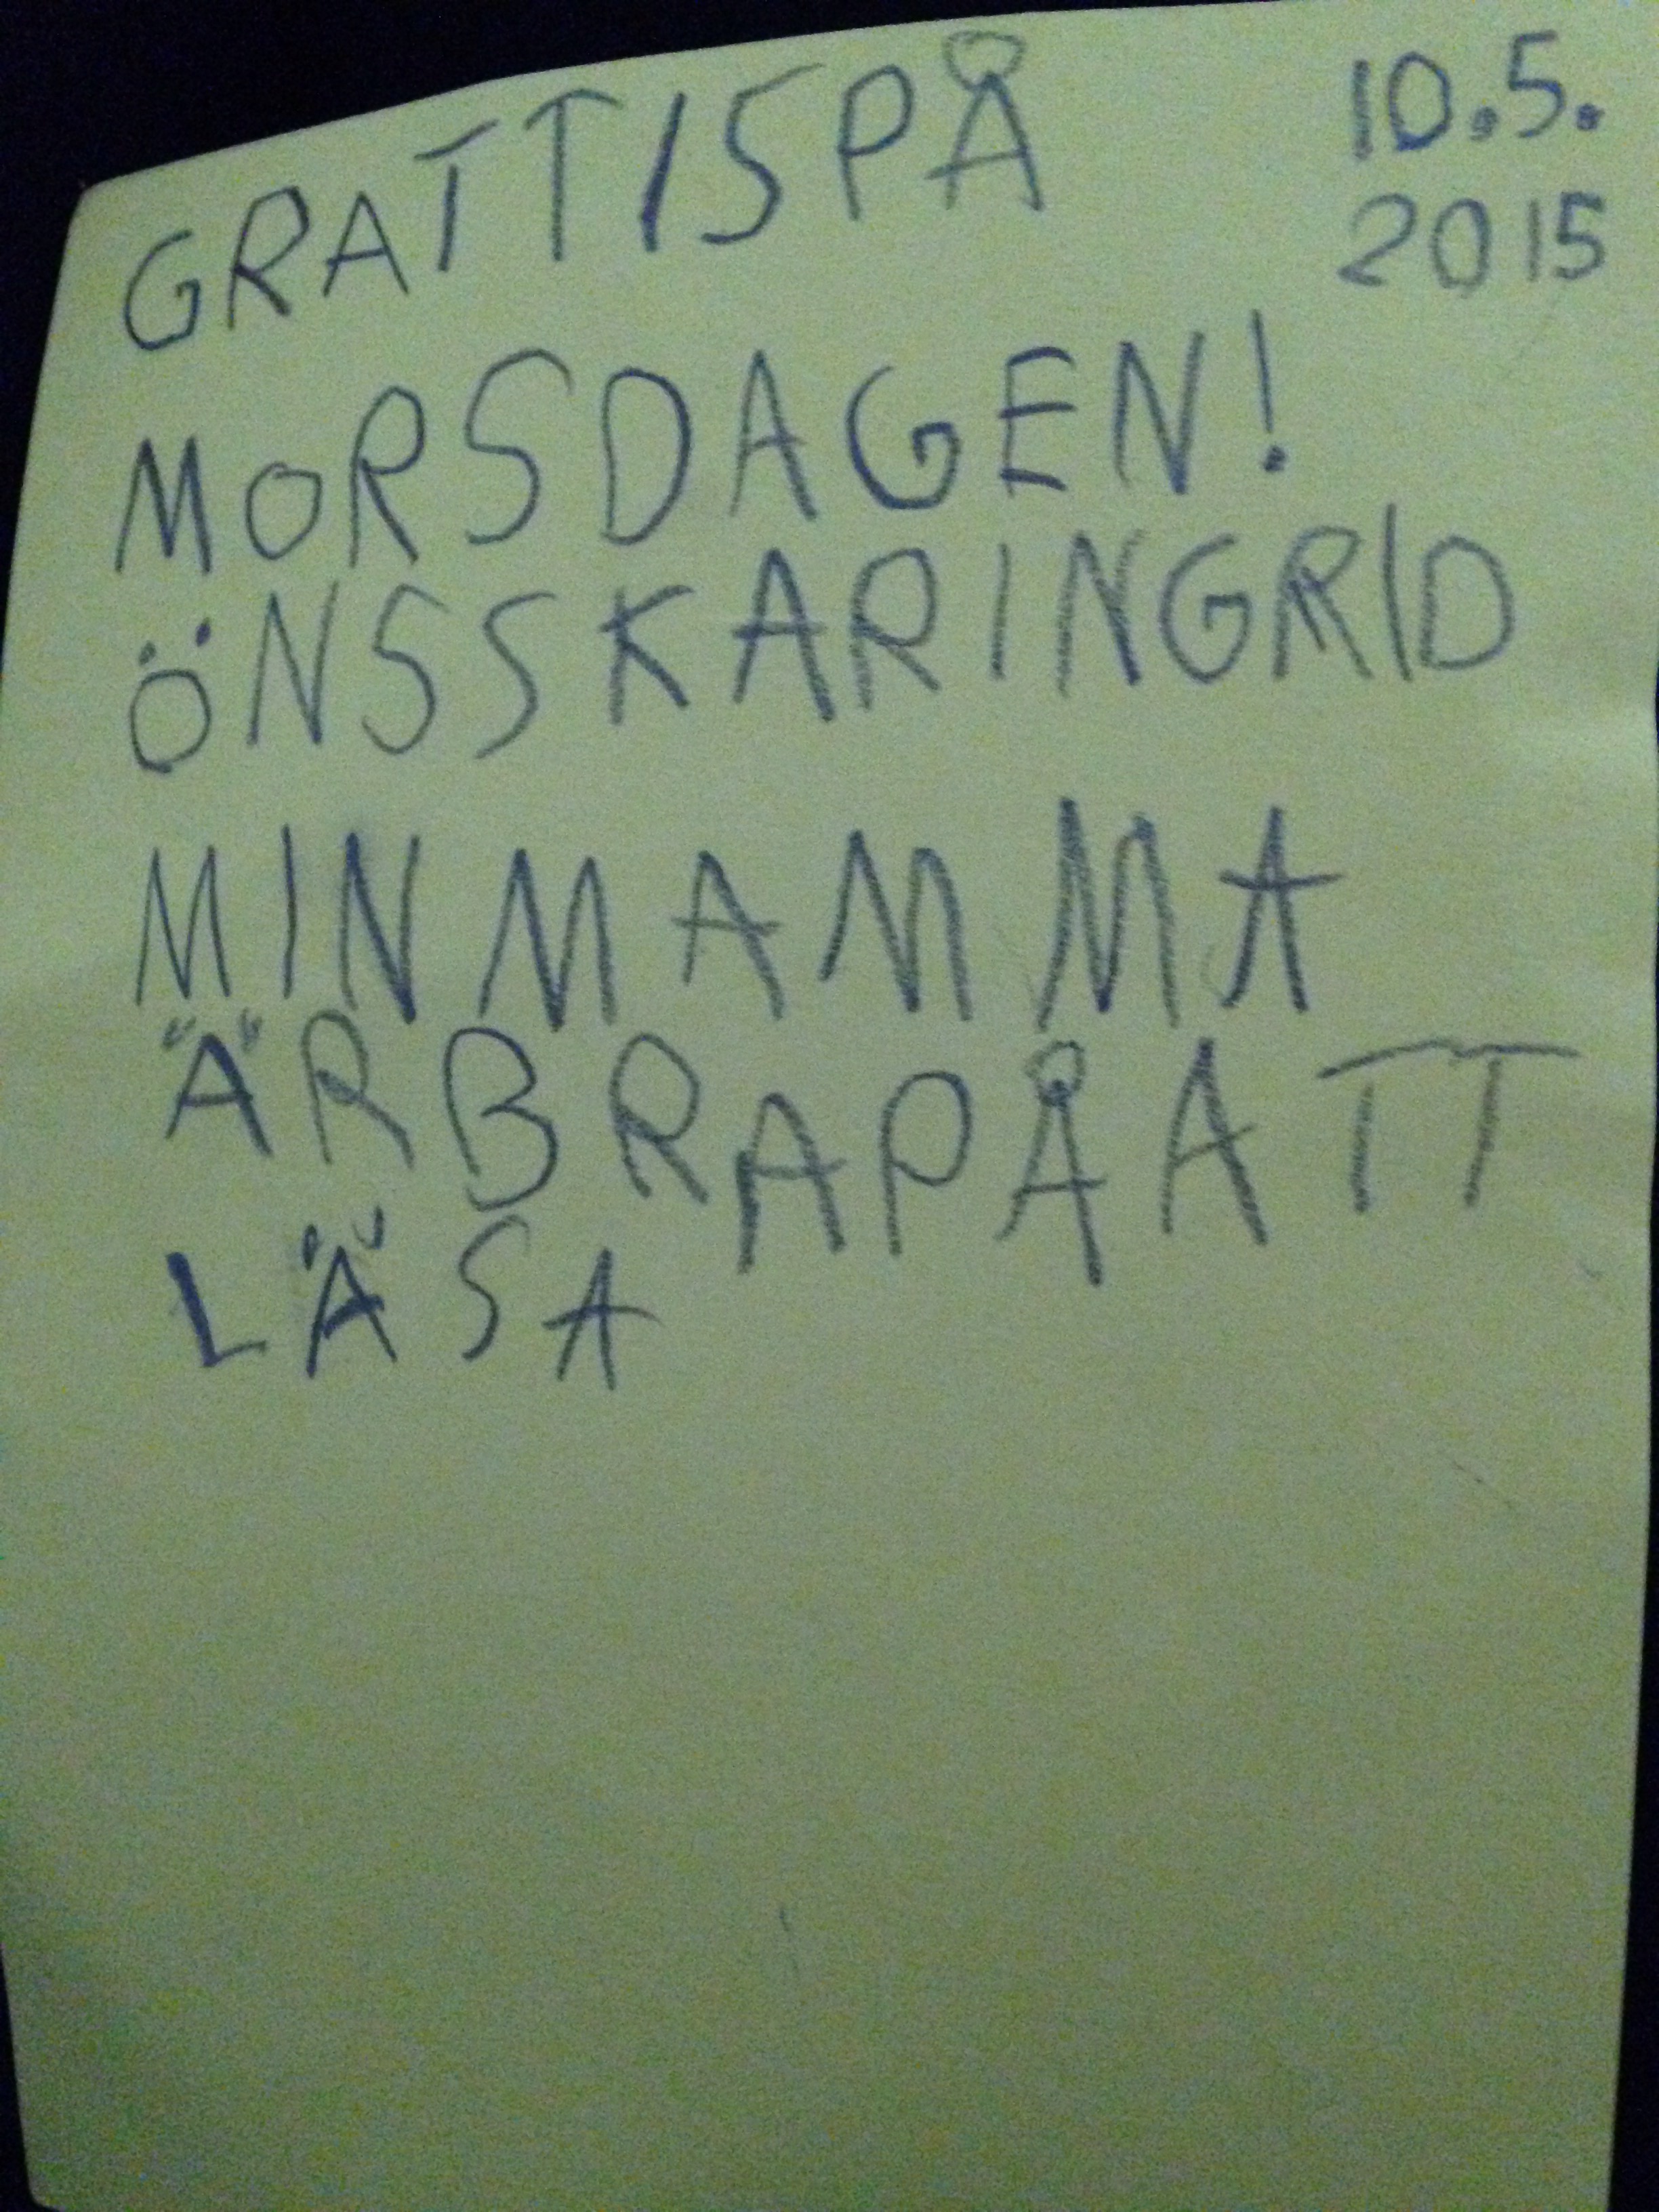 GRATTISPÅ
10.5.
2015
MORSDAGEN!
ÖNSSKARINGRID
MINMAMMA
ÄRBRAPÅATT
LÄSA